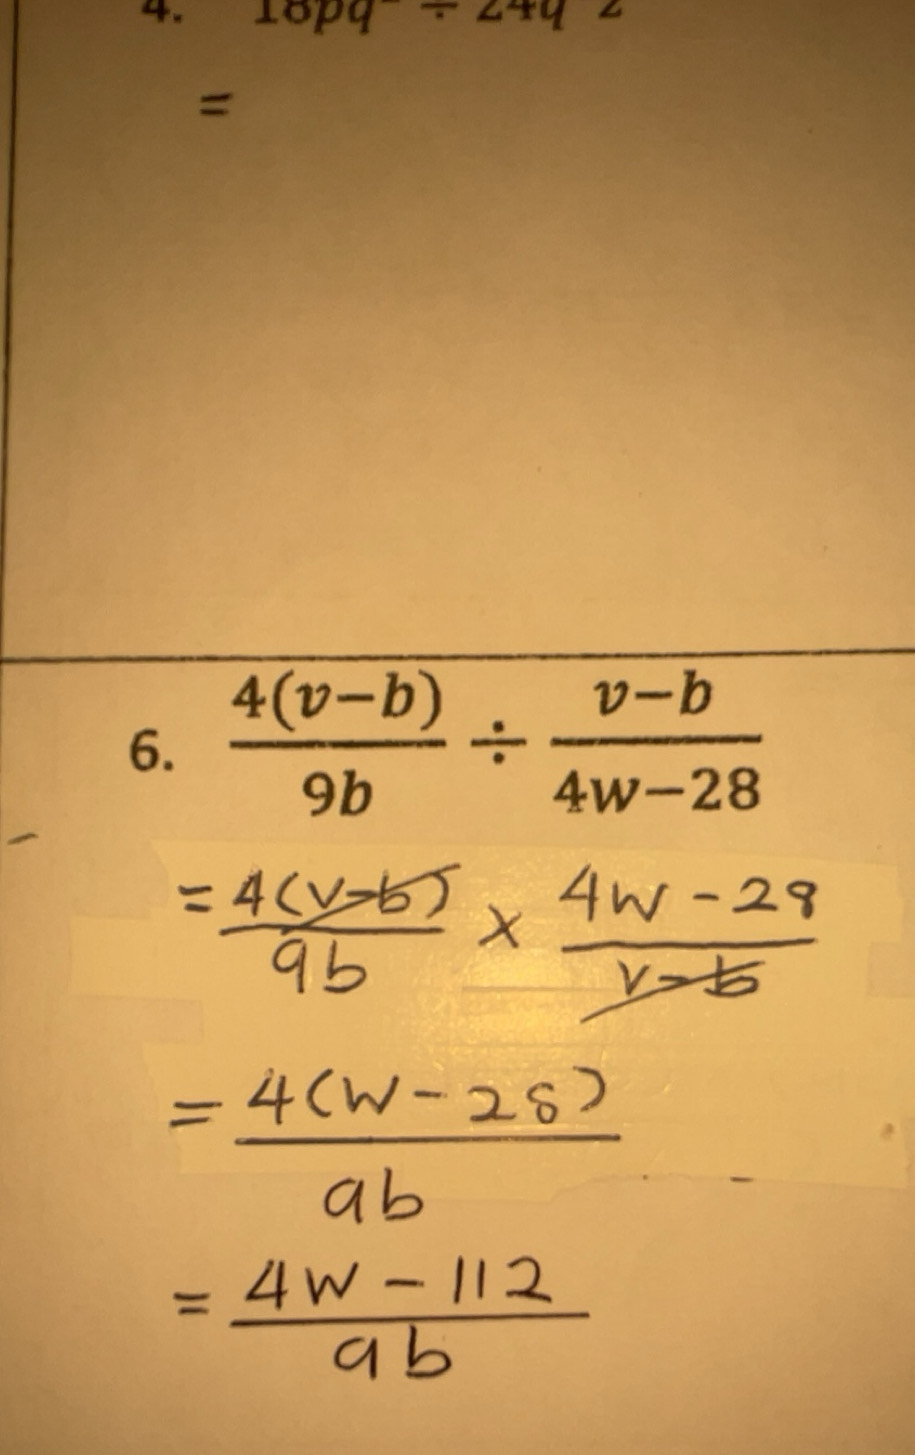 4. 18pq ÷ 24q 2
=
6. 4(v−b)/9b ÷ v−b/4w−28
= 4(v-b)/9b × 4w - 28/v-b
= 4(w - 28)/9b
= 4w - 112/9b